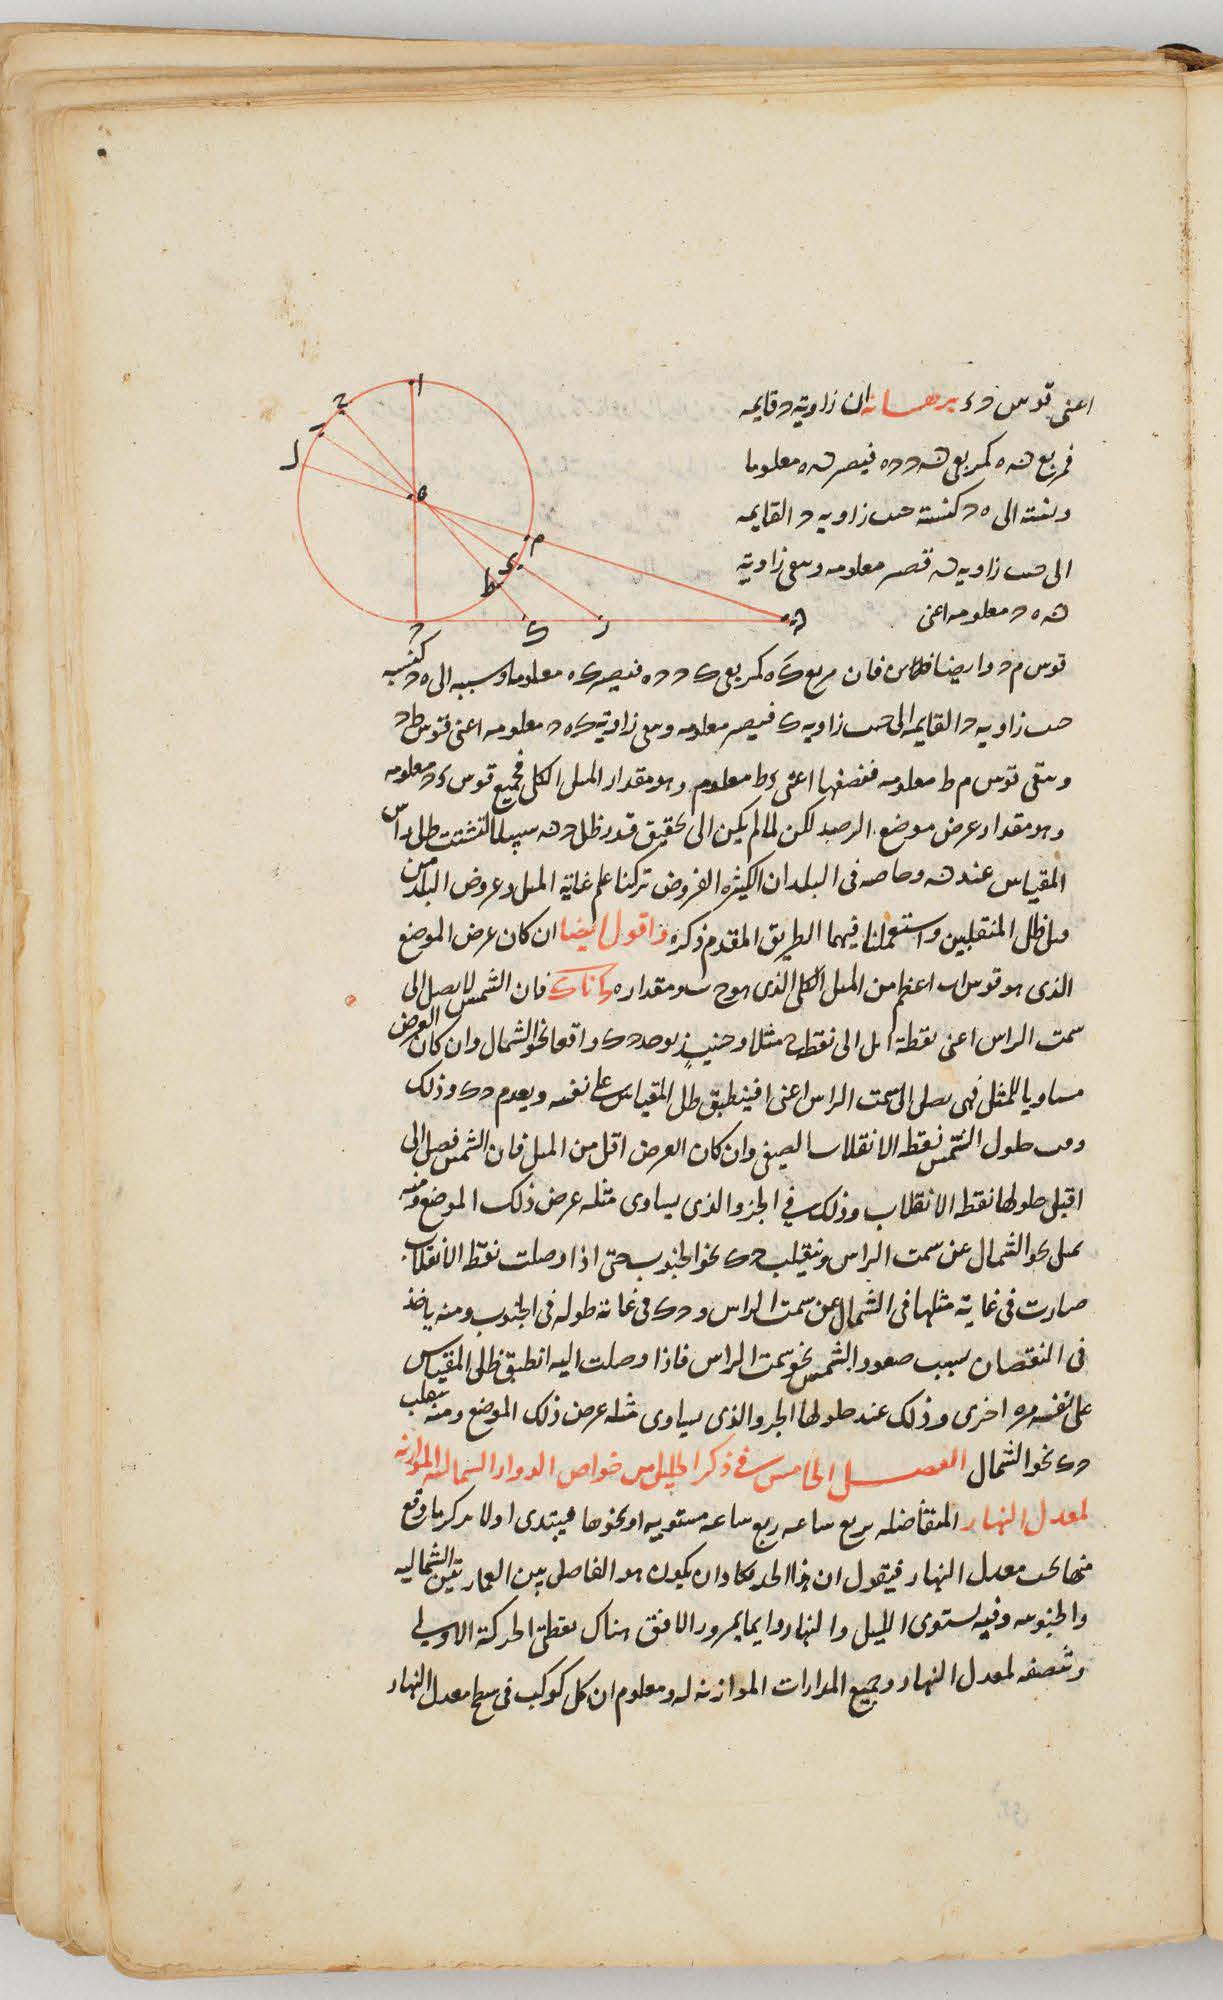 اعنى قوس د ى برهانه ان زاوية د قايمه
فمربع ن ه كمربعى ن د د ه فيصير ن ه معلوما
ونسبته الى ه د كنسبة جيب زاويه د القايمه
الى جيب زاويه ن فتصير معلومه وتبقى زاوية
ن ه د معلومه اعنى
قوس م د وايضا فان مربع ك ه كمربعى ك د د ه فيصير ك ه معلوما ونسبته الى ه د كنسبه
جيب زاويه د القايمه الى جيب زاويه ك فيصير معلومه وتبقى زاوية ك ه د معلومه اعنى قوس ط د
وتبقى قوس م ط معلومه فنصفها اعنى ى ط معلوم وهو مقدار الميل الكلى فجميع قوس ى د معلومه
وهو مقدار عرض موضع الرصد لكن لما لم يكن الى تحقيق قدر ظل د ن سبيل لتشتت ظل راس
المقياس عند ن وخاصه فى البلدان الكثيره العروض تركنا علم غاية الميل وعروض البلد من
قبل ظل المنقلبين واستعملنا فيهما الطريق المقدم ذكره واقول ايضا ان كان عرض الموضع
الذى هو قوس اب اعظم من الميل الكلى الذى هو ح ب ومقداره فان الشمس لا يصل الى
سمت الراس اعنى نقطة ا بل الى نقطة ح مثلا وحينيذ يوجد د ك واقعا نحو الشمال وان كان العرض
مساويا للميل فهى يصل الى سمت الراس اعنى ا فينطبق ظل المقياس على نفسه ويعدم د ك وذلك
وقت حلول الشمس نقطه الانقلاب الصيفى وان كان العرض اقل من الميل فان الشمس فصل الى
ا قبل حلولها نقطه الانقلاب وذلك فى الجزو الذى يساوى مثله عرض ذلك الموضع ومنه
تميل نحو الشمال عن سمت الراس وينقلب د ك نحو الجنوب حتى اذا وصلت نقطة الانقلاب
صارت فى غاية مثلها فى الشمال عن سمت الراس و د ك فى غاية طوله فى الجنوب ومنه ياخذ
فى النقصان بسبب صعود الشمس نحو سمت الراس فاذا وصلت اليه انطبق ظل المقياس
على نفسه مره اخرى وذلك عند حلولها الجزو الذى يساوى مثله عرض ذلك الموضع ومنه ينقلب
د ك نحو الشمال الفصل الخامس فى ذكر الجليل من خواص الدواير الشماليه الموازنه
لمعدل النهار المتفاضله بربع ساعه ربع ساعه مستويه او نحوها فيبتدى اولا بذكر ما وقع
منها تحت معدل النهار فيقول ان هذا الحد يكاد ان يكون هو الفاصل بين العمارتين الشماليه
والجنوبيه وفيه يستوى الليل والنهار دايما بمرور الافق هناك بقطبى الحركة الاولى
وتنصفه لمعدل النهار وجميع المدارات الموازنه له ومعلوم ان كل كوكب فى سطح معدل النهار